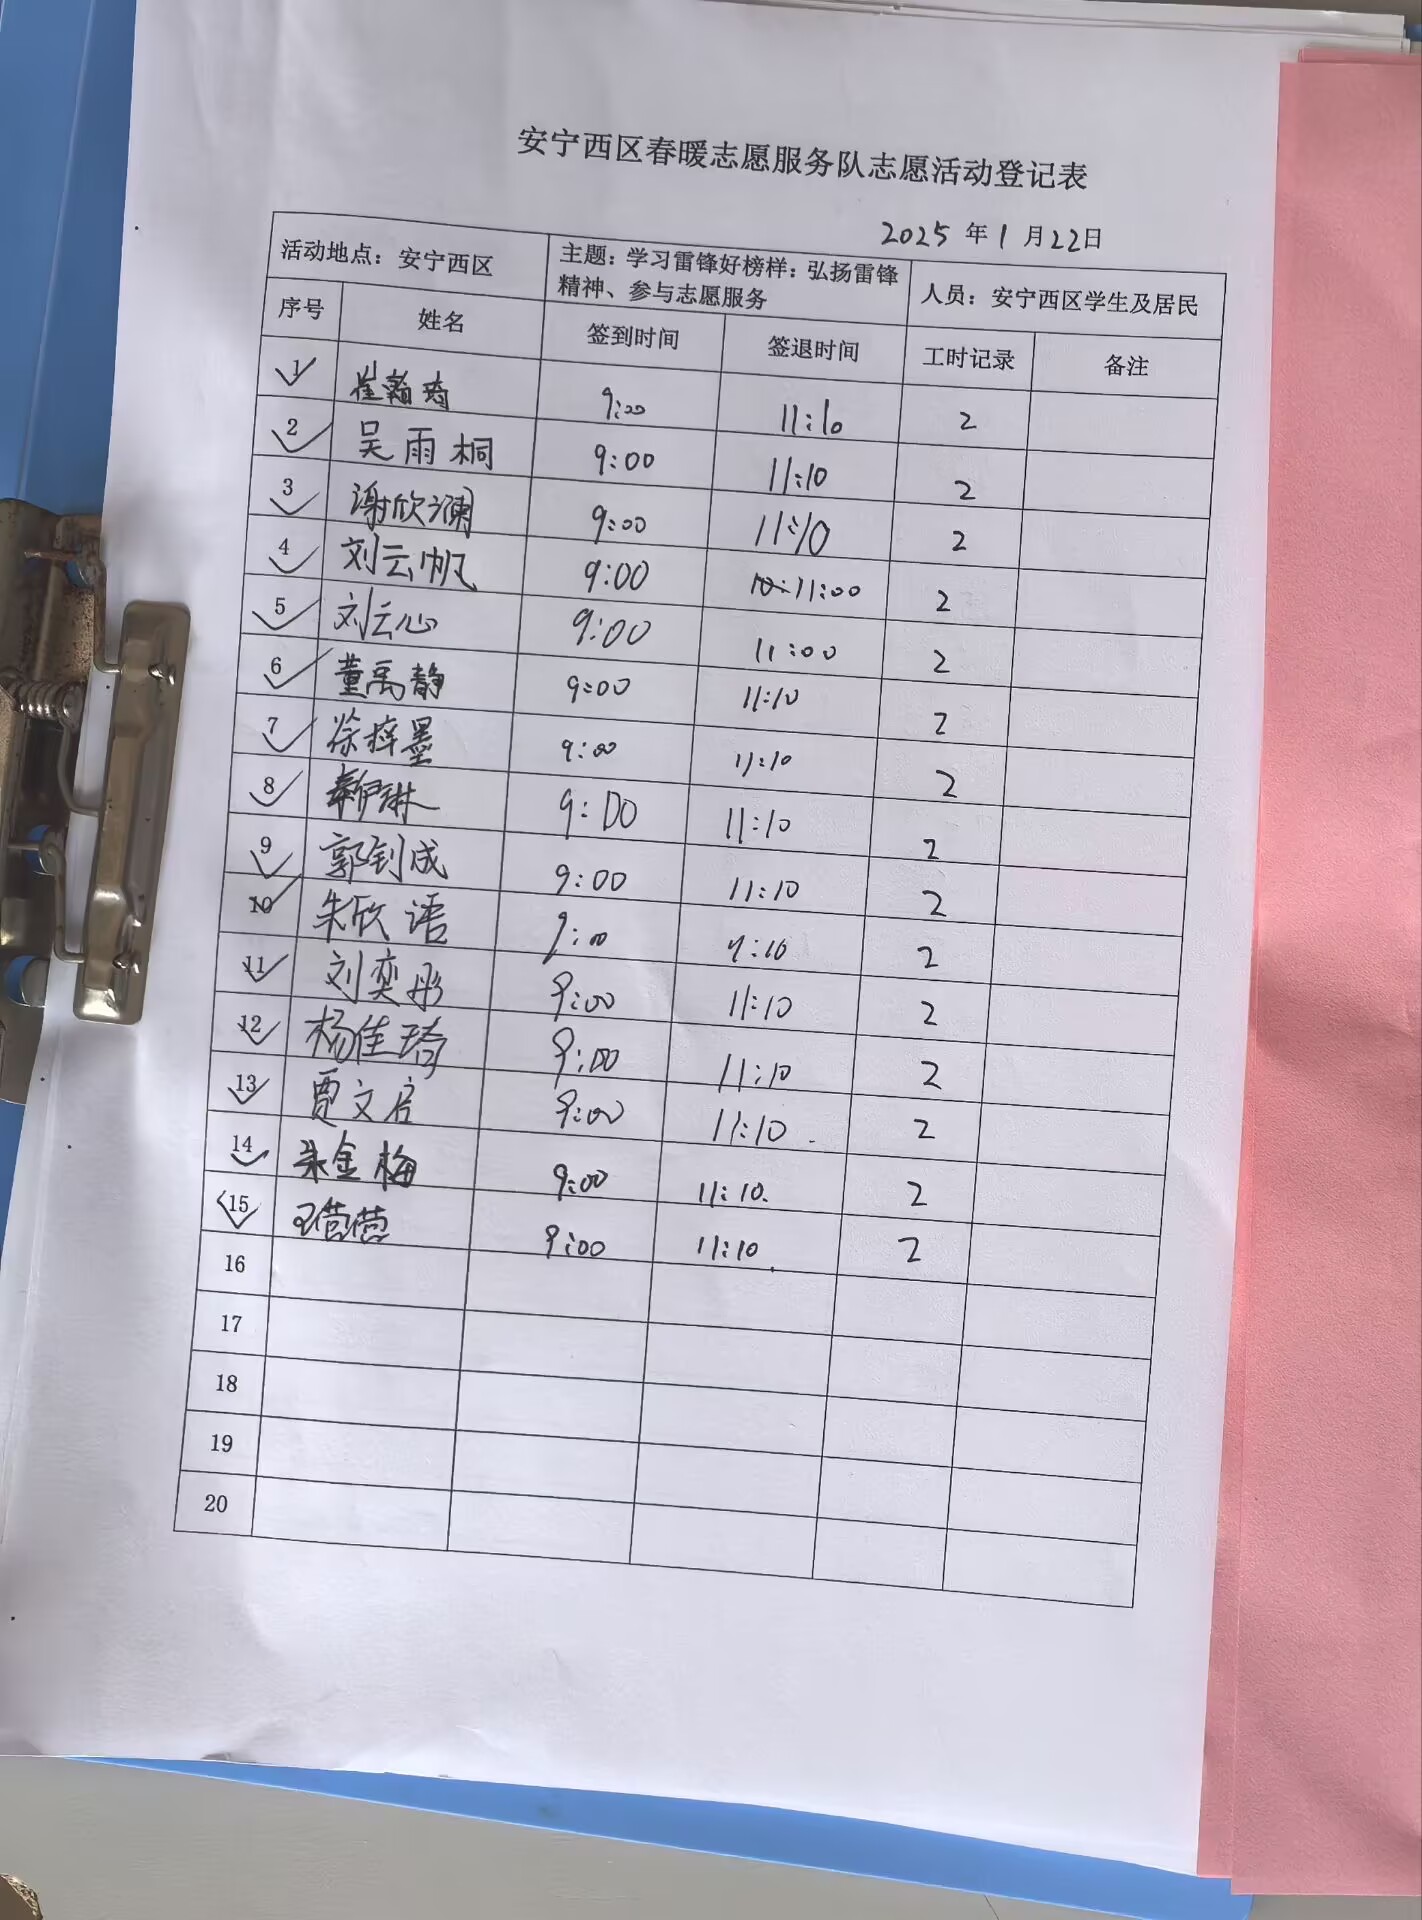 安宁西区春暖志愿服务队志愿活动登记表
2025 年 1 月 22 日
活动地点：安宁西区 主题：学习雷锋好榜样：弘扬雷锋精神、参与志愿服务 人员：安宁西区学生及居民
序号 姓名 签到时间 签退时间 工时记录 备注
1 崔翰琦 9:00 11:10 2
2 吴雨桐 9:00 11:10 2
3 谢欣澜 9:00 11:10 2
4 刘云帆 9:00 11:00 2
5 刘云心 9:00 11:00 2
6 董禹静 9:00 11:10 2
7 徐梓墨 9:00 11:10 2
8 9:00 11:10 2
9 郭钊成 9:00 11:10 2
10 朱欣语 9:00 11:10 2
11 刘奕彤 9:00 11:10 2
12 杨佳琦 9:00 11:10 2
13 贾文启 9:00 11:10 2
14 朱金梅 9:00 11:10 2
15 王营营 9:00 11:10 2
16
17
18
19
20